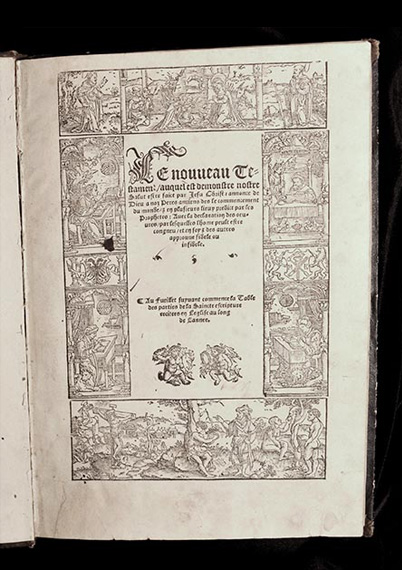 LE nouueau Te-
stament, auquel est demonstre nostre
Salut estre faict par Jesu Christ: annonce de
Dieu a noz Peres anciens des le commencement
du monde, & en plusieurs lieux predict par ses
Prophetes: Auec la declaration des oeu-
ures, par lesquelles lhome peult estre
congneu, et en soy & des autres
approuue fidele ou
infidele.
Au Fueillet suyuant commence la Table
des parties de la Saincte escripture
recitees en Leglise au long
de Lannee.